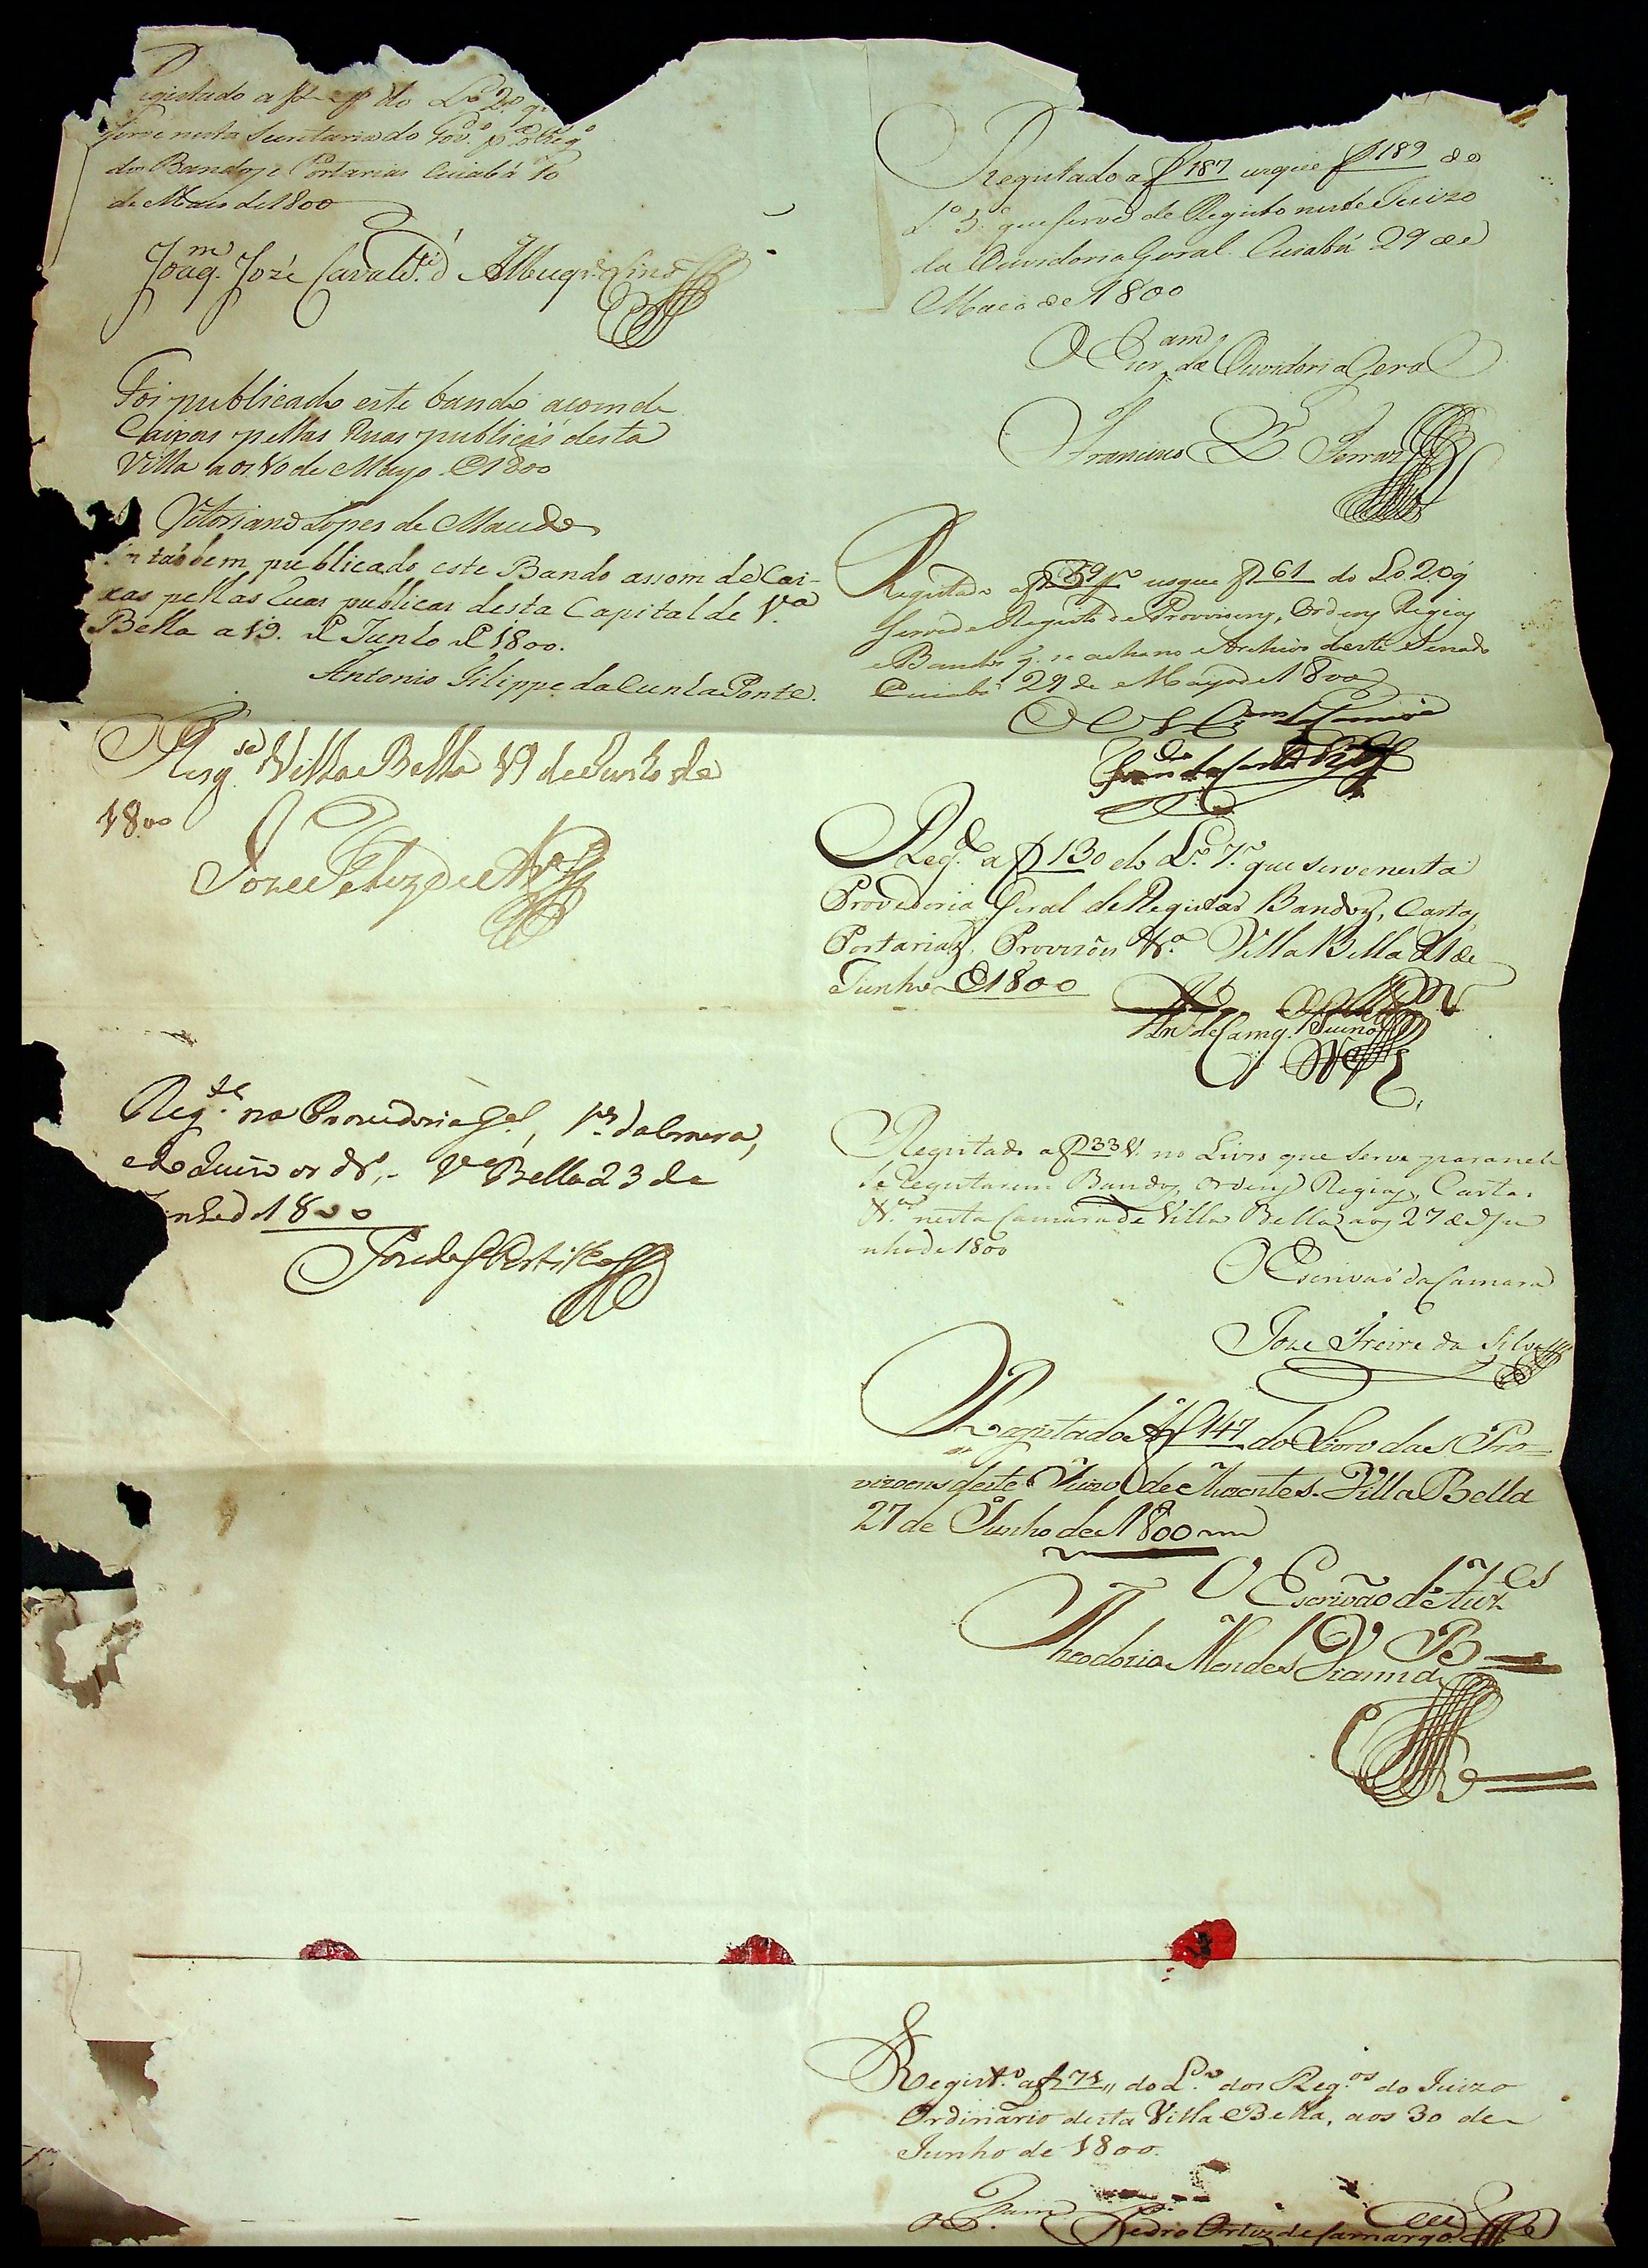 Registado a f do L.o 2.o q.
serve nesta Secretaria do Gov.o p.a o Reg.o
dos Bandos, e Portarias Cuiabá 10
de Maio de 1800
Joaq.m Jozé Cavalc.ti d' Albuq.e Lins
Foi publicado este bando a som de
Caixas pellas Ruas publicas desta
Villa aos 10 de Mayo de 1800
Vitoriano Lopes de Macedo
taõbem publicado este Bando assom de Cai-
xas pellas Ruas publicas desta Capital de V.a
Bella a 19. de Junho de 1800.
Antonio Filippe da Cunha Ponte.
Reg.se Villa Bella 19 de Junho de
1800
Reg.se na Provedoria G.al,
Juizo os V.a Bella 23 de
Junho de 1800
Registado a f 187 usque f 189 do
L.o 5.o que serve de Registo neste Juizo
da Ouvidoria Geral. Cuiabá 29 de
Maio de 1800
O Escr.am da Ouvidoria Geral
Francisco Ferraz
Registado a f 59 usque f 61 do L.o 2.o q
serve de Registo de Provisoens, Ordens Regias
e Bandos q. se acha no Archivo deste Senado
Cuiabá 29 de Mayo de 1800
Reg.do a f 130 do L.o 7.o que serve nesta
Provedoria Geral de Registar Bandos, Cartas,
Portarias, Provizões &.a Villa Bella 21 de
Junho de 1800
An.to de Camg.o Bueno
Registado a f 33 v. no Livro que serve para nelle
se registarem Bandos, Ordens Regias, Cartas
&.a nesta Camara de Villa Bella aos 27 de Ju
nho de 1800
O Escrivaõ da Camara
Joze Freire da Silva
Registado A f 147 do Livro das Pro-
vizoens deste Juizo de Auzentes. Villa Bella
27 de Junho de 1800
O Escrivão de Auz.es
Theodozio Mendes
Regist.o a f 71, do L.o dos Reg.os do Juizo
Ordinario desta Villa Bella, aos 30 de
Junho de 1800.
Pedro Ortiz de Camargo